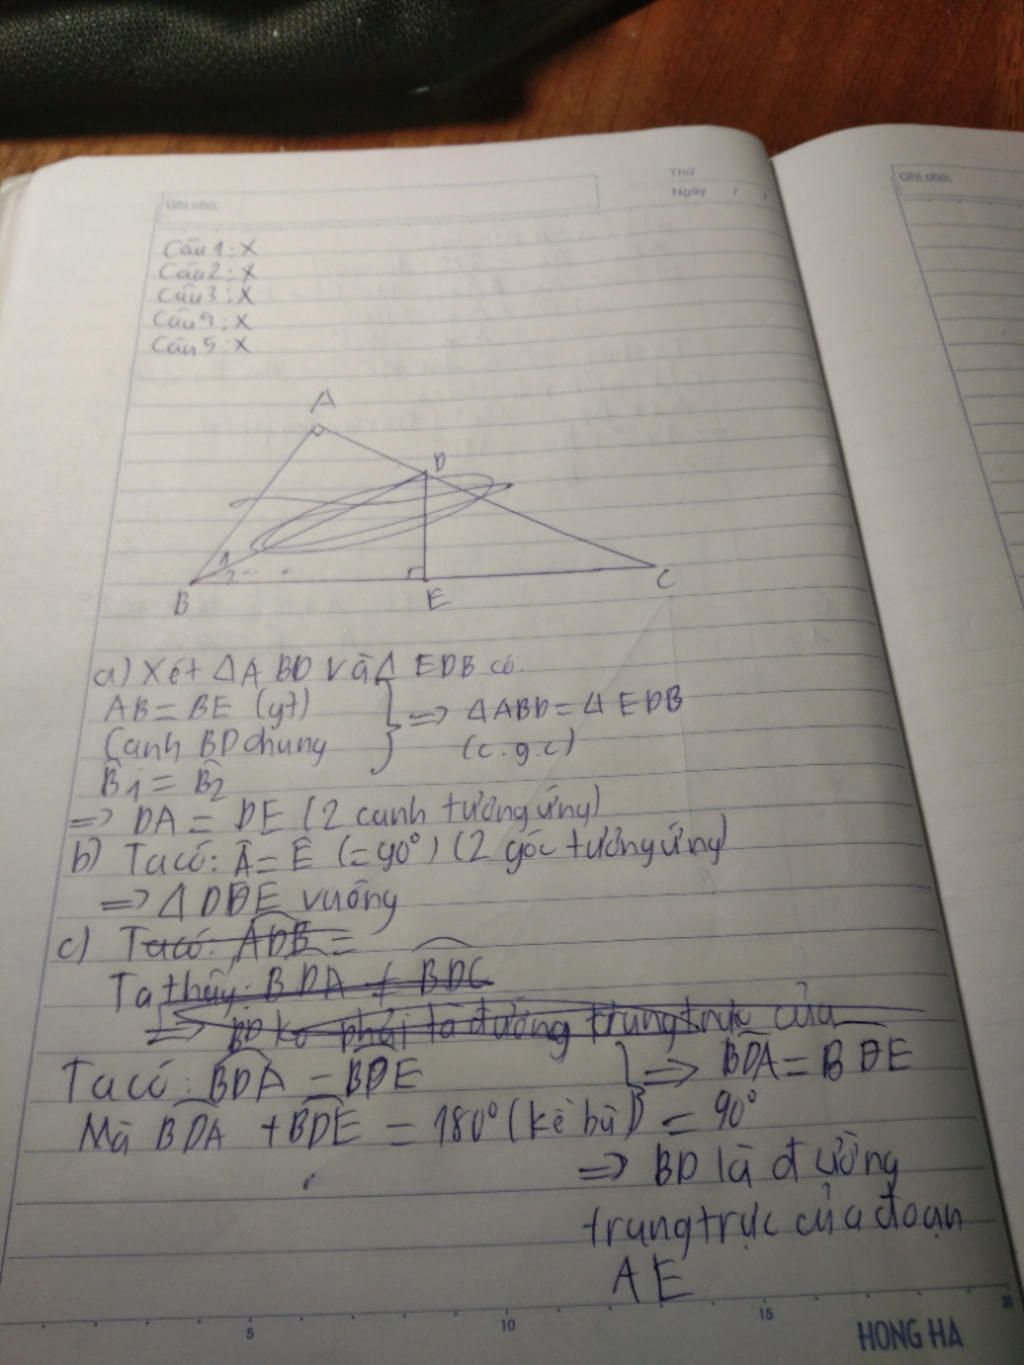 Thứ
Ghi chú:
Ngày / /
Ghi chú:
Câu 1: X
Câu 2: X
Câu 3: X
Câu 4: X
Câu 5: X
A
D
1
2
B
E
C
a) Xét ΔABD và Δ EDB có.
AB = BE (gt)
Cạnh BD chung
B̂1 = B̂2
} => ΔABD = Δ EDB
(c.g.c)
=> DA = DE (2 cạnh tương ứng)
b) Ta có: Â = Ê (= 90°) (2 góc tương ứng)
=> Δ DBE vuông
c) Ta có: ADB =
Ta thấy: BDA ≠ BDC
=> BD ko phải là đường trung trực của
Ta có: BDA = BDE
Mà BDA + BDE = 180° (kề bù)
} => BDA = BDE
= 90°
=> BD là đường
trung trực của đoạn
AE
5 10 15 20
HONG HA